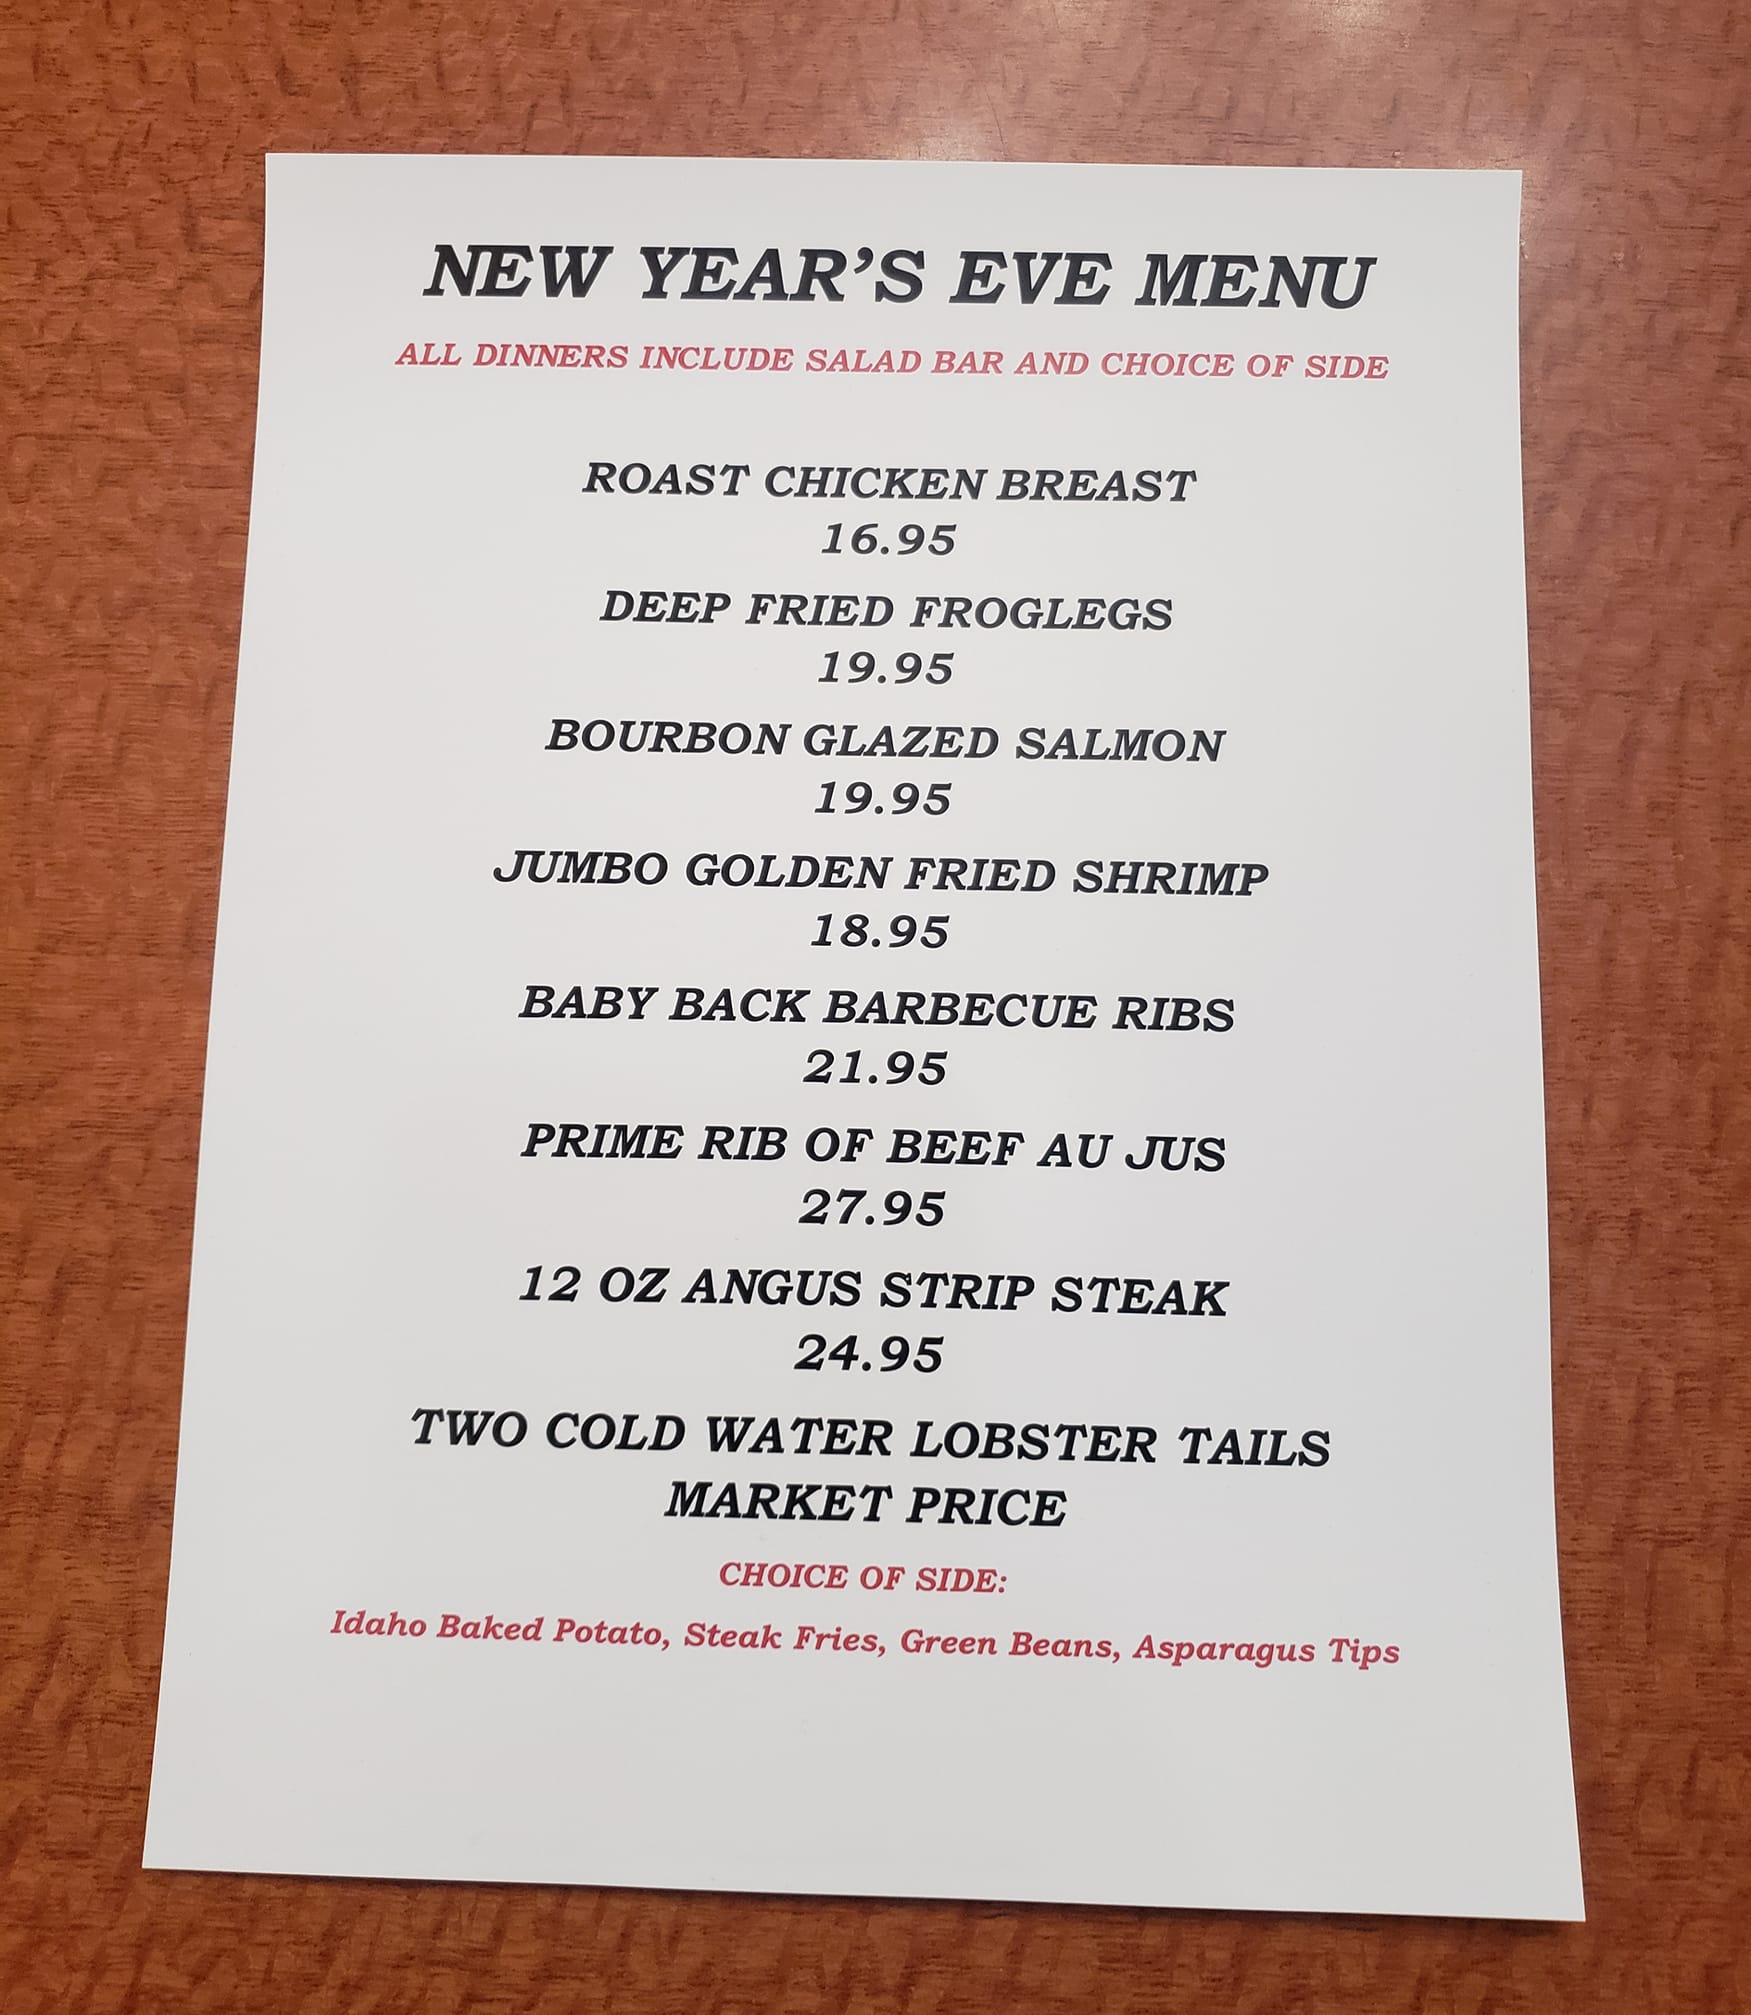 NEW YEAR'S EVE MENU
ALL DINNERS INCLUDE SALAD BAR AND CHOICE OF SIDE
ROAST CHICKEN BREAST
16.95
DEEP FRIED FROGLEGS
19.95
BOURBON GLAZED SALMON
19.95
JUMBO GOLDEN FRIED SHRIMP
18.95
BABY BACK BARBECUE RIBS
21.95
PRIME RIB OF BEEF AU JUS
27.95
12 OZ ANGUS STRIP STEAK
24.95
TWO COLD WATER LOBSTER TAILS
MARKET PRICE
CHOICE OF SIDE:
Idaho Baked Potato, Steak Fries, Green Beans, Asparagus Tips